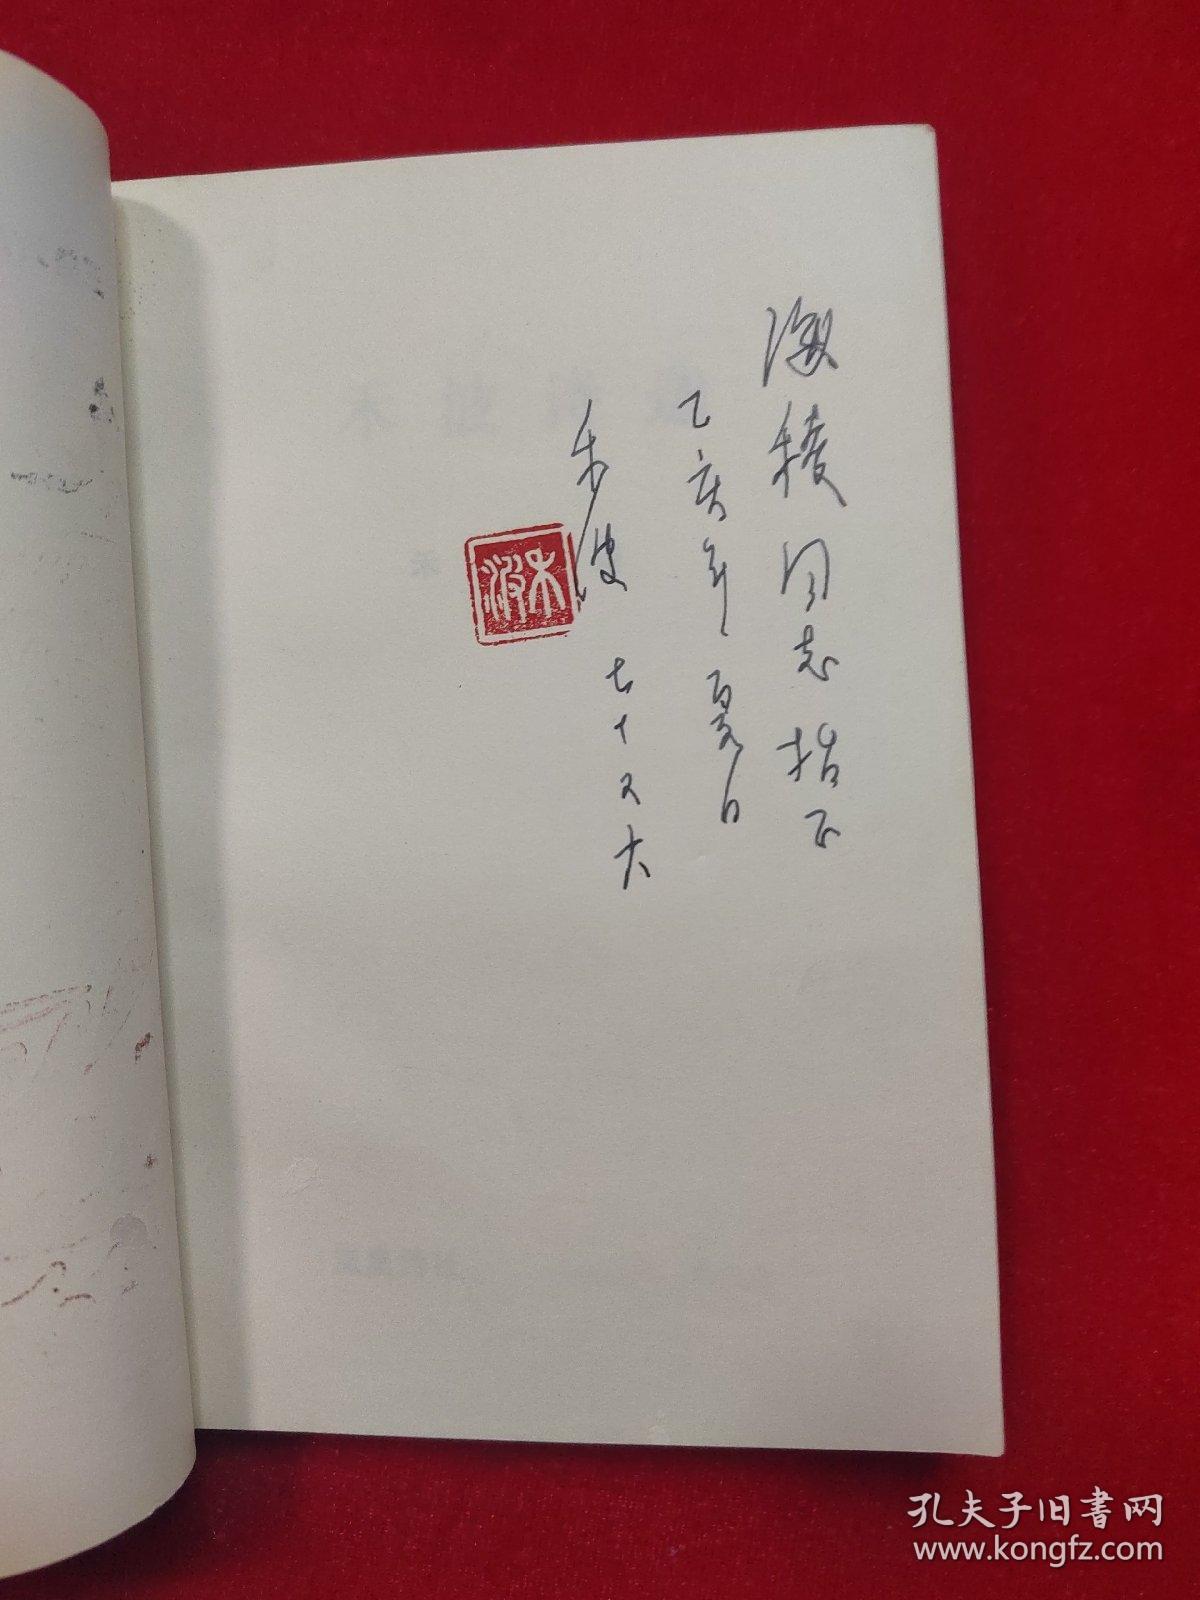 稜同志指正
乙亥年夏日
禾波 七十又六
禾波
孔夫子旧书网
www.kongfz.com